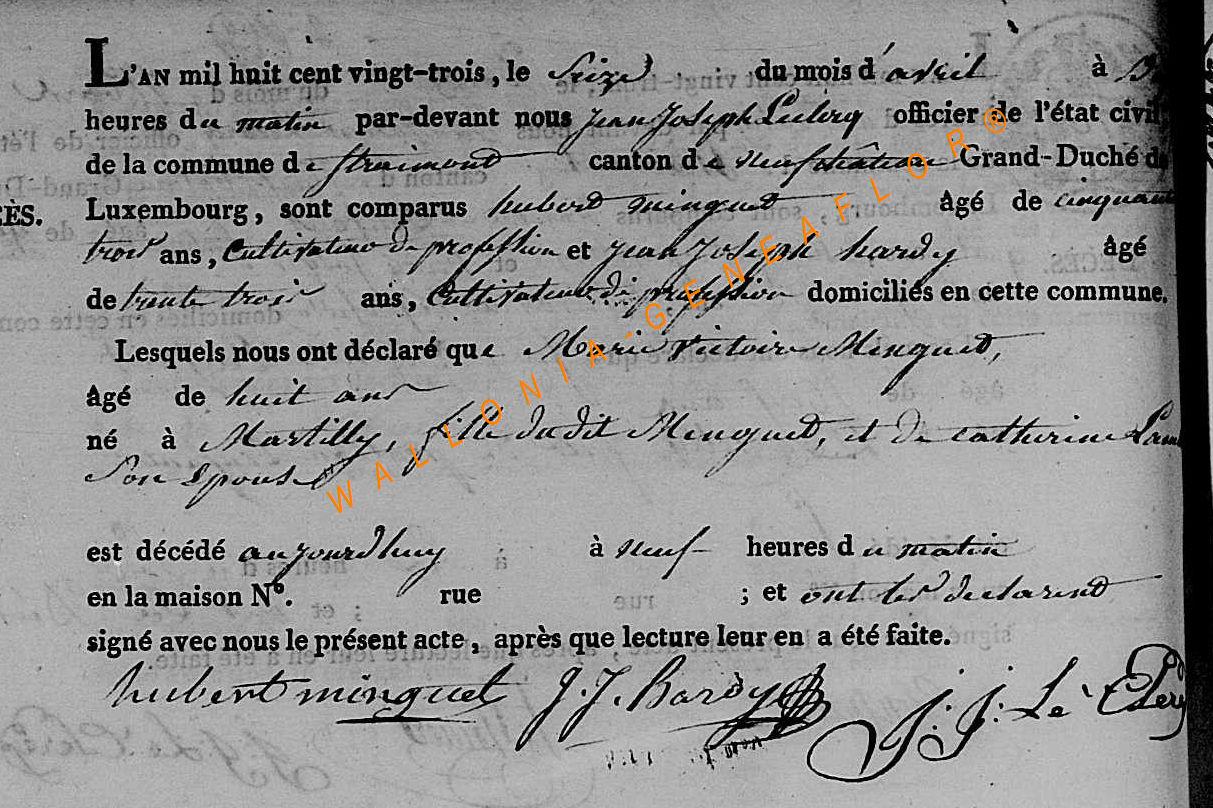 L'AN mil huit cent vingt-trois, le Seize du mois d'avril à
heures du matin par-devant nous Jean Joseph Leclery officier de l'état civil
de la commune de Straimont canton de neufchâteau Grand-Duché de
CÈS. Luxembourg, sont comparus hubert minguet âgé de cinquante
trois ans, Cultivateur de profession et jean joseph hardy âgé
de trente trois ans, Cultivateur de profession domiciliés en cette commune.
Lesquels nous ont déclaré que Marie Victoire Minguet,
âgé de huit ans
né à Martilly, fille dudit Minguet, et de catherine Lam
Son Epouse
est décédé aujourdhuy à neuf heures du matin
en la maison N°. rue ; et ont les declarent
signé avec nous le présent acte, après que lecture leur en a été faite.
hubert minguet J. J. Hardy J: J: Le Clery
WALLONIA-GENEAFLOR®